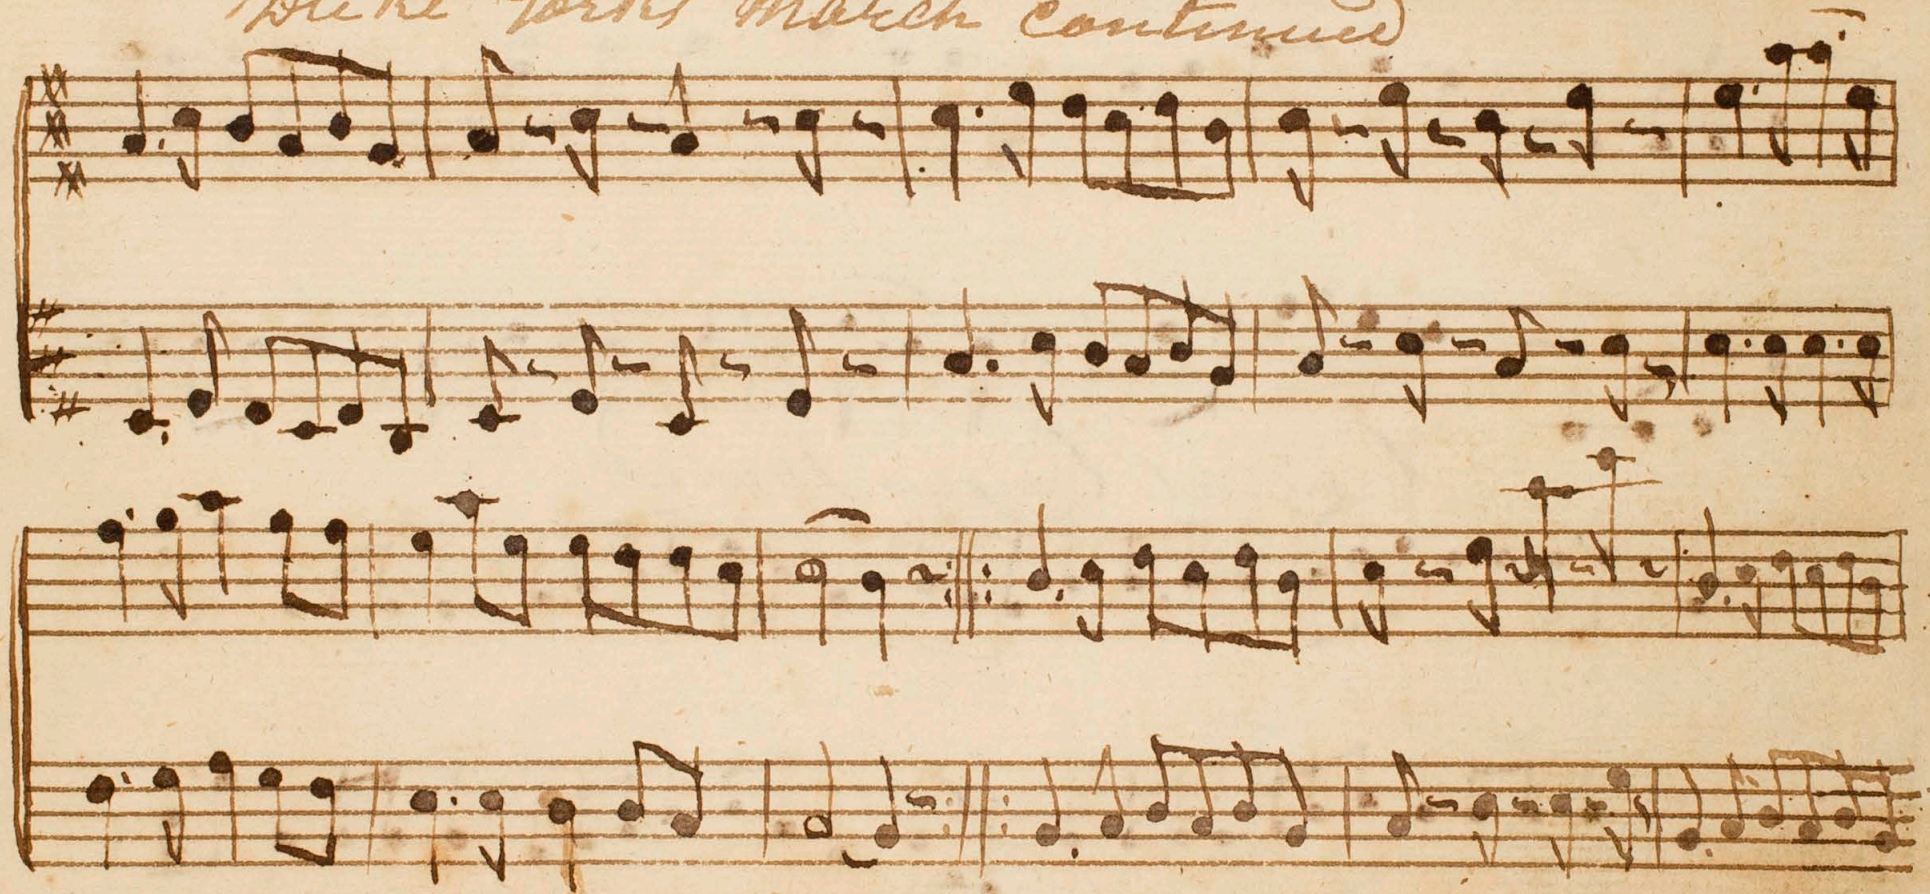 Duke Yorks March continued